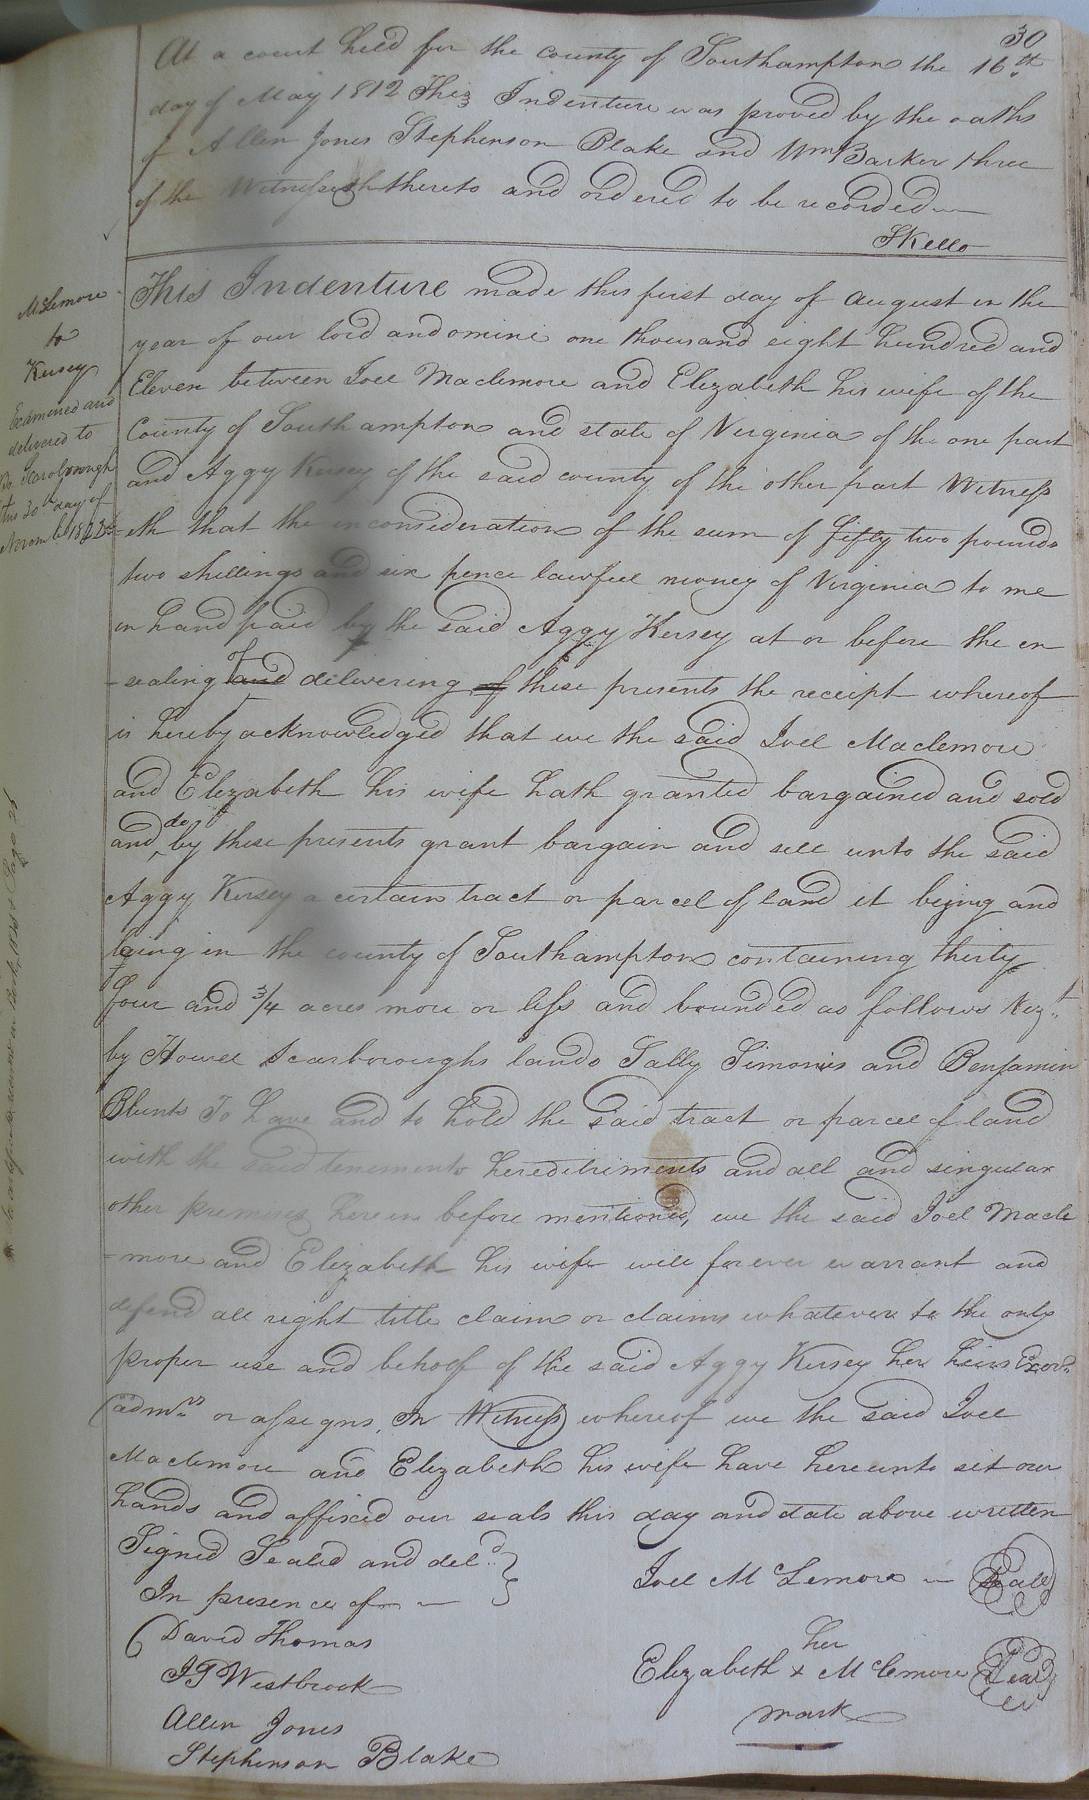 30
At a court held for the county of Southampton the 16th
day of May 1812 This Indenture was proved by the oaths
of Allen Jones Stephenson Blake and Wm Barker three
of the Witnesseth thereto and ordered to be recorded
SKello
McLemore
to
Kersey
Examined and
delivered to
Scarborough
this 20th day of
This Indenture made this first day of August in the
year of our lord andomini one thousand eight hundred and
Eleven between Joel Maclemore and Elizabeth his wife of the
County of Southampton and state of Virginia of the one part
and Aggy Kersey of the said county of the other part Witness
=eth that the in consideration of the sum of fifty two pounds
two shillings and six pence lawfull money of Virginia to me
in hand paid by the said Aggy Kersey at or before the en
-sealing and of delivering of these presents the receipt whereof
is hereby acknowledged that we the said Joel Maclemore
and Elizabeth his wife hath granted bargained and sold
and do by these presents grant bargain and sell unto the said
Aggy Kersey a certain tract or parcel of land it being and
laing in the county of Southampton containing thirty
four and 3/4 acres more or less and bounded as follows
by Howel Scarboroughs lands Sally Simonis and Benjamin
Blunts To have and to hold the said tract or parcel of land
with the said tenements hereditriments and all and singular
other premises herein before mentioned, we the said Joel Macle
=more and Elizabeth his wife will forever warrant and
defend all right title claim or claims whatever to the only
proper use and behoof of the said Aggy Kersey her heirs Exors
admrs or assigns, In Witness whereof we the said Joel
Maclemore and Elizabeth his wife have hereunto set our
hands and affixed our seals this day and date above written
Signed Sealed and deld
In presence of
Joel McLemore Seal
David Thomas
her
JT Westbrook
Elizabeth x McLemore Seal
mark
Allen Jones
Stephenson Blake